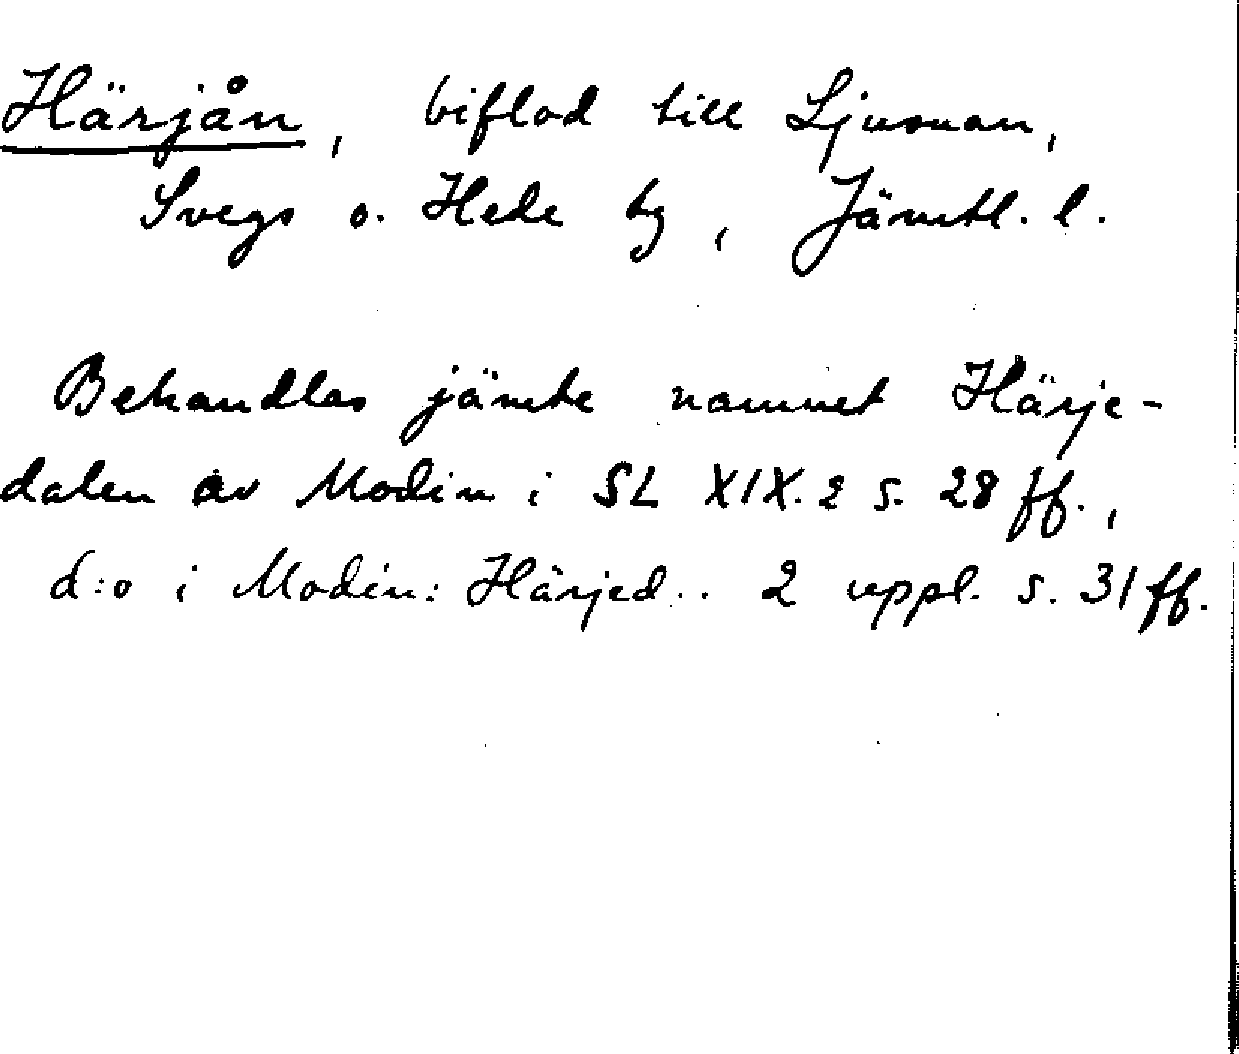 Härjån, biflod till Ljusnan,
Svegs o. Hede tg, Jämtl. l.
Behandlas jämte namnet Härje-
dalen av Modin i SL XIX. 2 s. 28 ff.,
d:o i Modin: Härjed.. 2 uppl. s. 31 ff.